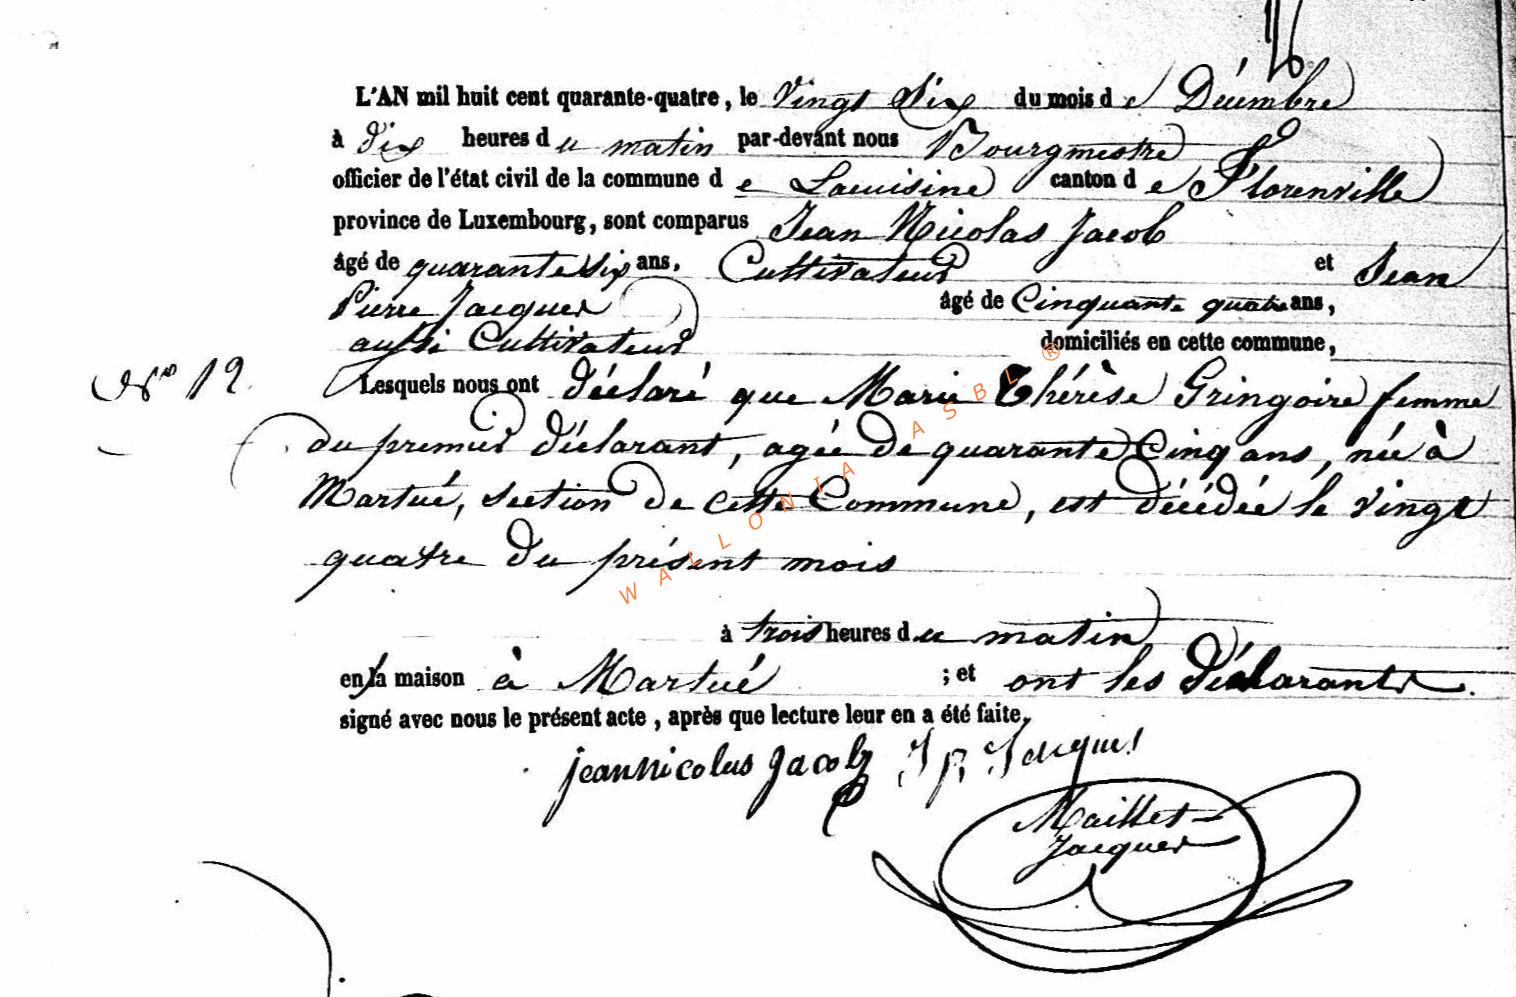 L'AN mil huit cent quarante-quatre, le Vingt Six du mois de Décembre
à dix heures du matin par-devant nous Bourgmestre
officier de l'état civil de la commune de Lacuisine canton de Florenville
province de Luxembourg, sont comparus Jean Nicolas Jacob
âgé de quarante six ans, Cultivateur et Jean
Pierre Jacques âgé de Cinquante quatre ans,
aussi Cultivateur domiciliés en cette commune,
N° 12. Lesquels nous ont déclaré que Marie Thérèse Gringoire femme
du premier déclarant, agée de quarante Cinq ans, née à
Martué, section de cette Commune, est décédée le vingt
quatre du présent mois
à trois heures du matin
en la maison à Martué ; et ont les déclarants
signé avec nous le présent acte, après que lecture leur en a été faite.
jean nicolas jacob J P Jacques
Maillet-
Jacques
WALLONIA ASBL ®